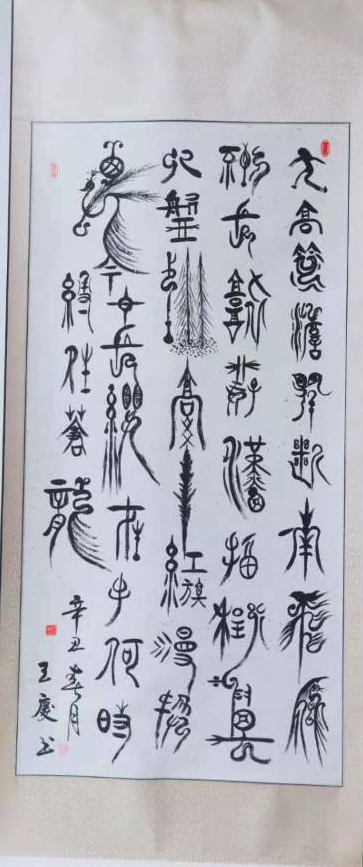 天高雲淡望斷南飛雁
不到長城非好漢屈指行程二萬
六盤山上高峰紅旗漫捲
西風今日長纓在手何時
縛住蒼龍
辛丑春月
王慶书